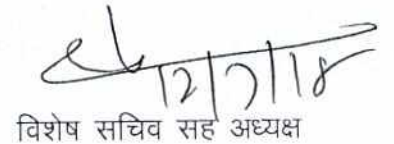 12/7/18
विशेष सचिव सह अध्यक्ष